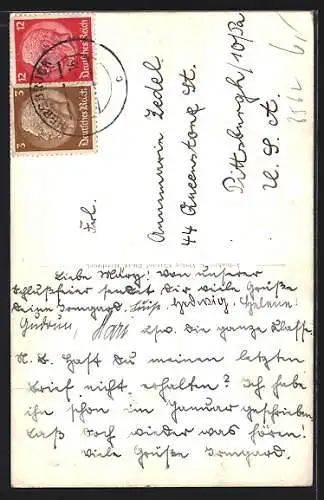 12 12
Deutsches Reich
3 3
Deutsches Reich
Frl.
Annemarie Zedel
44 Queenstone St.
Pittsburgh/10/Pa
U. S. A.
Liebe Murg! Von unserer
Schlußfeier sendet Dir viele Grüße
Deine Irmgard. Luise. Hedwig. Helene.
Gudrun, bzw. die ganze Klasse.
N. B. Hast Du meinen letzten
Brief nicht erhalten? Ich habe
ihn schon im Januar geschrieben.
Laß doch wieder was hören!
Viele Grüße Irmgard.